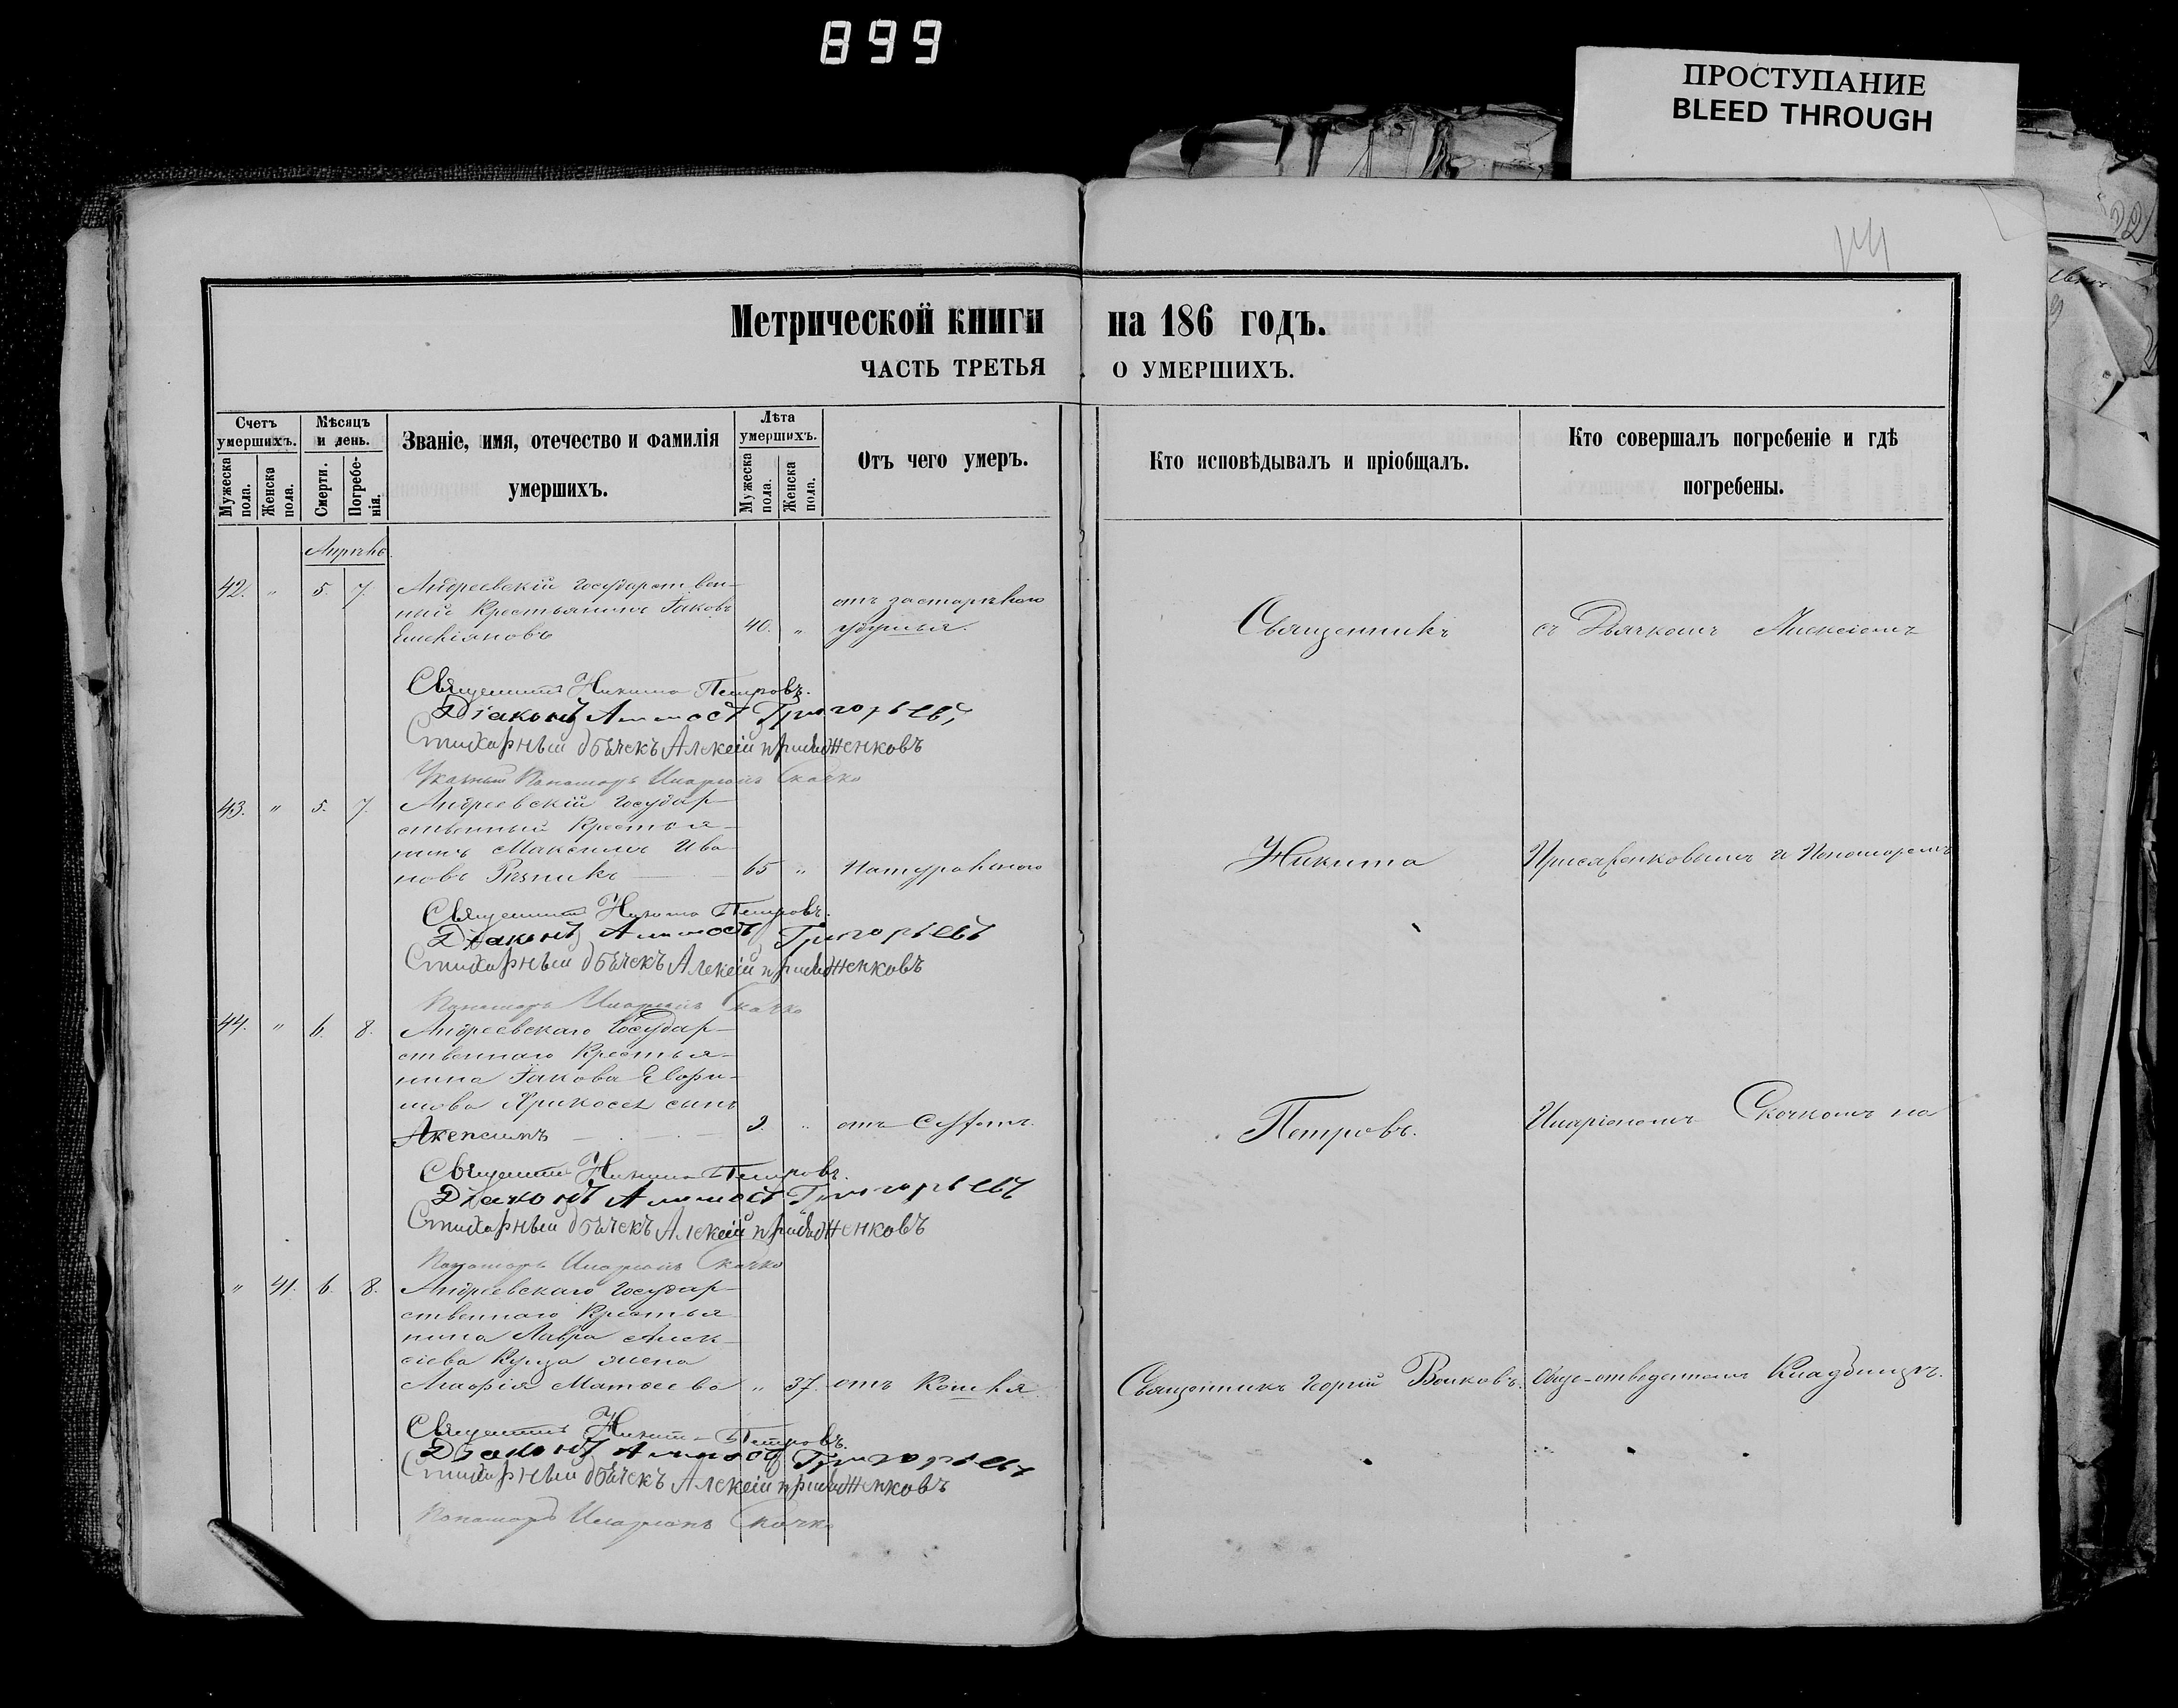 899
ПРОСТУПАНІЕ
BLEED THROUGH
Метрической книги на 186 годъ.
ЧАСТЬ ТРЕТЬЯ О УМЕРШИХЪ.
Счетъ умершихъ.
Мужеска пола.
Женска пола.
Мѣсяцъ и день.
Смерти.
Погребенія.
Званіе, имя, отечество и фамилія умершихъ.
Лѣта умершихъ.
Мужеска пола.
Женска пола.
Отъ чего умеръ.
Кто исповѣдывалъ и пріобщалъ.
Кто совершалъ погребеніе и гдѣ погребены.
42. " 5. 7. Андреевскій государствен-
ный Крестьянинъ Іаковъ
40. " отъ застарѣлаго
удушья.
Священникъ
съ Дьячкомъ Алексіемъ
Священникъ Никита Петровъ.
Діаконъ Григорьевъ
Стихарный дьячекъ Алексій
Указный Пономарь Иларіонъ Скочко
43. " 5. 7. Андреевскій государ-
ственный Крестья-
нинъ Максимъ Ива-
новъ Рѣзникъ 65 " Натуральною
Никита
и Пономаремъ
Священникъ Никита Петровъ.
Діаконъ Григорьевъ
Стихарный дьячекъ Алексій
Пономарь Иларіонъ Скочко
44. " 6. 8. Андреевскаго Государ-
ственнаго Крестья-
нина Іакова
сынъ
2. " отъ
Петровъ.
Иларіономъ Скочкомъ на
Священникъ Никита Петровъ.
Діаконъ Григорьевъ
Стихарный дьячекъ Алексій
Пономарь Иларіонъ Скочко
" 41. 6. 8. Андреевскаго Государ-
ственнаго Крестья-
нина Лавра Алек-
сіева жена
Агафія Матѳеева " 37. отъ Кашля
Священникъ Георгій Волковъ.
отведенномъ Кладбищѣ.
Священникъ Никита Петровъ.
Діаконъ Григорьевъ
Стихарный дьячекъ Алексій
Пономарь Иларіонъ Скочко